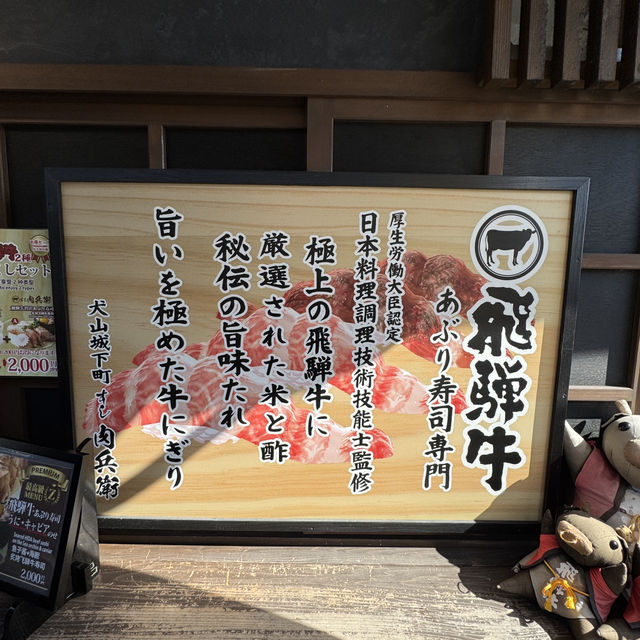 飛騨牛
あぶり寿司専門
厚生労働大臣認定
日本料理調理技術技能士監修
極上の飛騨牛に
厳選された米と酢
秘伝の旨味たれ
旨いを極めた牛にぎり
犬山城下町 すし 肉兵衛
2,000円
PREMIUM
MENU
飛騨牛あぶり寿司
うに・キャビアのせ
Seared HIDA beef sushi
2,000円